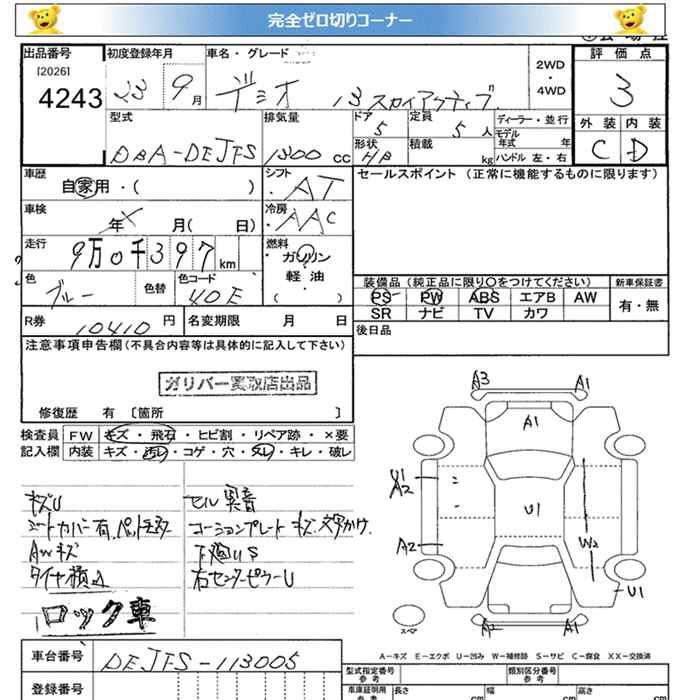 完全ゼロ切りコーナー
出品番号
[2026]
4243
初度登録年月
23 9月
車名・グレード
デミオ 13 スカイアクティブ
2WD
・
4WD
評価点
3
外装 内装
C D
型式
DBA-DEJFS
排気量
1300 cc
ドア
5
定員
5 人
形状
HB
積載
kg
ディーラー・並行
モデル
年式 年
ハンドル 左・右
車歴
自家用・( )
シフト
AT
セールスポイント (正常に機能するものに限ります)
車検
年 月( 日)
冷房
AAC
走行
9万0千397 km
燃料
ガソリン
軽油
( )
色
ブルー
色替
色コード
40E
装備品 (純正品に限り〇をつけてください)
新車保証書
PS PW ABS エアB AW
有・無
SR ナビ TV カワ
R券
10410 円
名変期限 月 日
後日品
注意事項申告欄(不具合内容等は具体的に記入して下さい)
ガリバー買取店出品
修復歴 有 [箇所 ]
検査員
記入欄
FW キズ・飛石・ヒビ割・リペア跡・×要
内装 キズ・汚レ・コゲ・穴・スレ・キレ・破レ
キズU
シートカバー有
AWキズ
タイヤ積込
ロック車
セル異音
コーションプレート キズ.文字かけ
下廻りS
右センターピラーU
A3
A1
A1
U1
A2
U1
A2
W2
U1
A2
A2
スペア
A-キズ E-エクボ U-凹み W-補修跡 S-サビ C-腐食 XX-交換済
車台番号
DEJFS-113005
登録番号
型式指定番号
参考
類別区分番号
参考
車庫証明用
参考
長さ
cm
幅
cm
高さ
cm